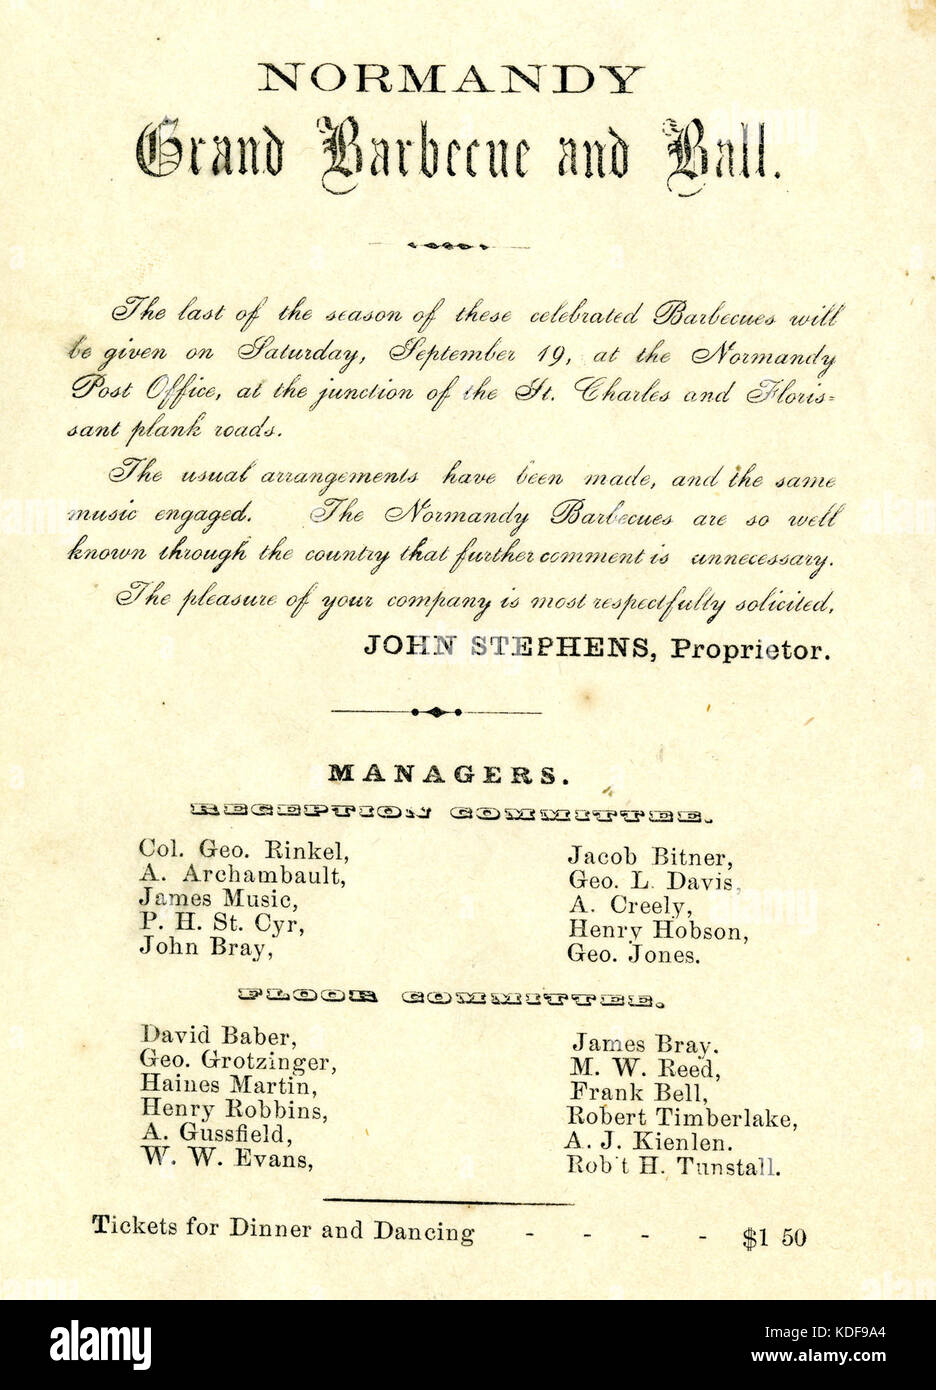 NORMANDY
Grand Barbecue and Ball.
The last of the season of these celebrated Barbecues will
be given on Saturday, September 19, at the Normandy
Post Office, at the junction of the St. Charles and Floris=
sant plank roads.
The usual arrangements have been made, and the same
music engaged. The Normandy Barbecues are so well
known through the country that further comment is unnecessary.
The pleasure of your company is most respectfully solicited,
JOHN STEPHENS, Proprietor.
MANAGERS.
RECEPTION COMMITTEE.
Col. Geo. Rinkel,
A. Archambault,
James Music,
P. H. St. Cyr,
John Bray,
Jacob Bitner,
Geo. L. Davis,
A. Creely,
Henry Hobson,
Geo. Jones.
FLOOR COMMITTEE.
David Baber,
Geo. Grotzinger,
Haines Martin,
Henry Robbins,
A. Gussfield,
W. W. Evans,
James Bray.
M. W. Reed,
Frank Bell,
Robert Timberlake,
A. J. Kienlen.
Rob't H. Tunstall.
Tickets for Dinner and Dancing - - - - $1 50
alamy
Image ID: KDF9A4
www.alamy.com